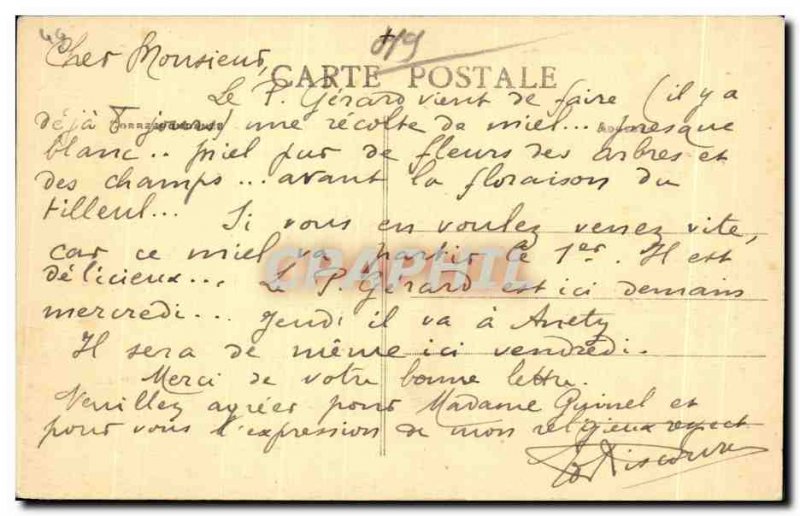 49
Cher Monsieur,
CARTE POSTALE
Le P. Gérard vient de faire (il y a
déjà 8 jours) une récolte de miel... presque
blanc.. miel pur de fleurs des arbres et
des champs... avant la floraison du
tilleul... Si vous en voulez venez vite,
car ce miel va partir le 1er. Il est
délicieux... Le P. Gérard est ici demain
mercredi... Jeudi il va à
Il sera de même ici vendredi.
Merci de votre bonne lettre.
Veuillez agréer pour Madame et
pour vous l'expression de mon religieux respect
CPRAPHIL